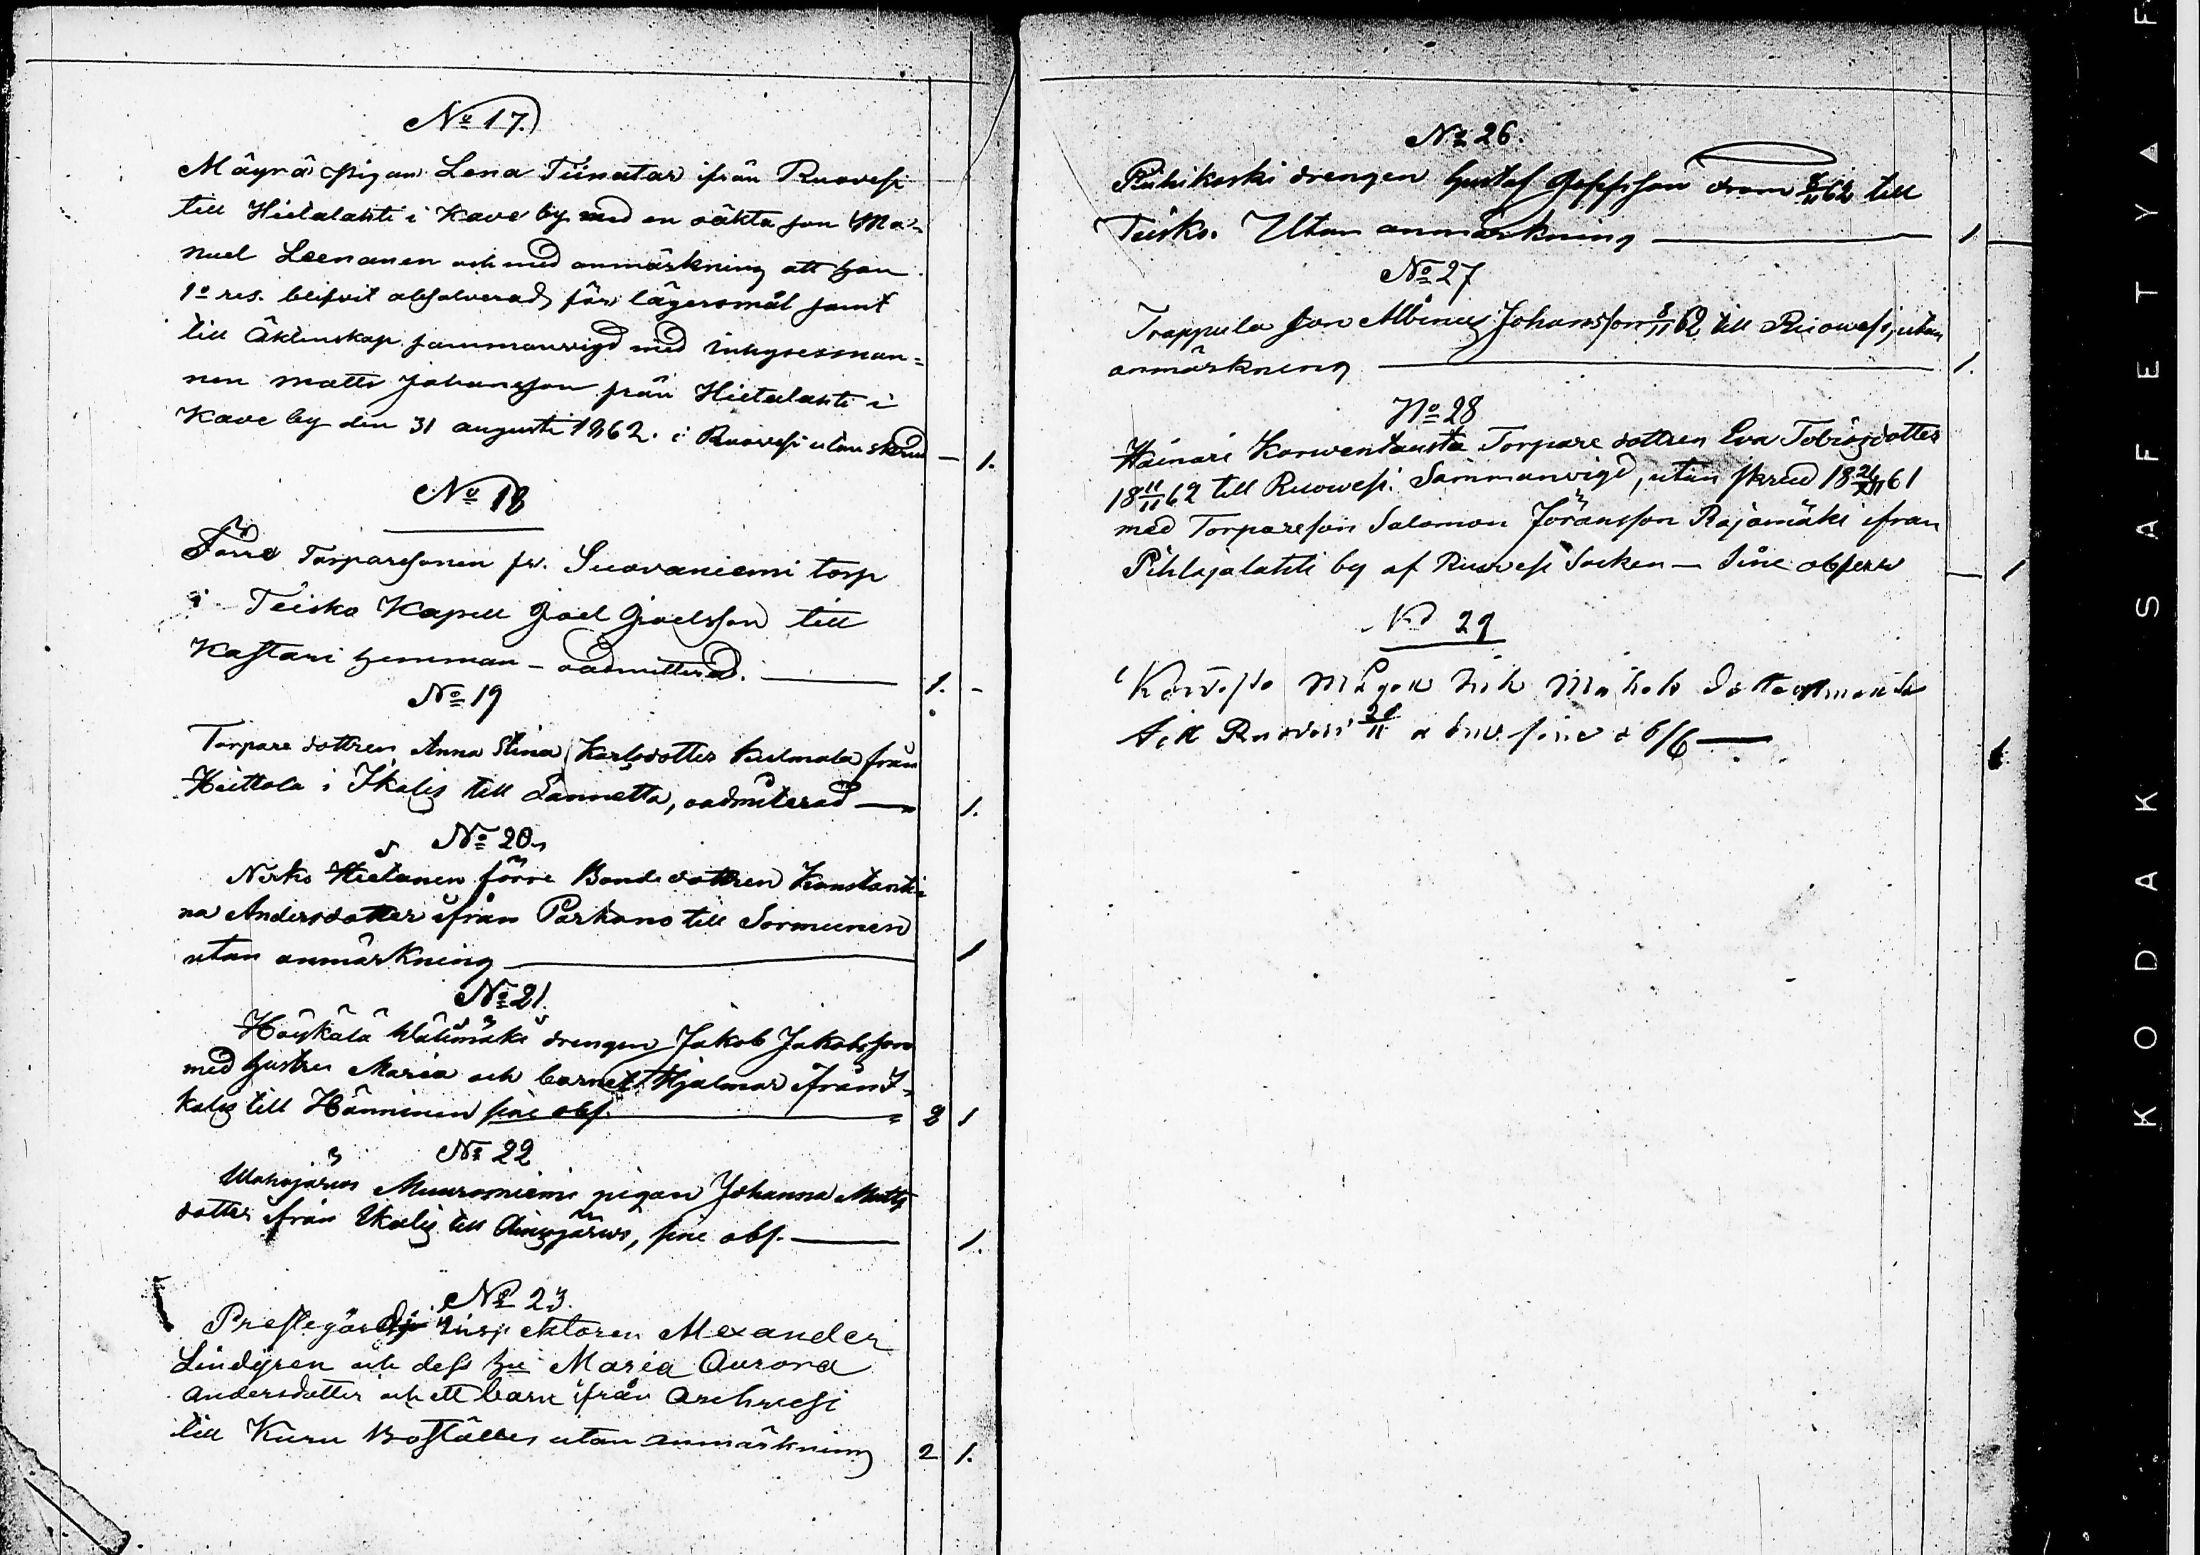 No 17.)
Mäyrä pigan Lena Tiinatar ifrån Ruovesi
till Hietalahti i Kave by med en oäkta son Ma-
nuel Leenanen och med anmärkning att hon
1o res. blifvit absolverad för lägersmål samt
till Äktenskap sammanvigd med inhysesman-
nen Matts Johansson från Hietalahti i
Kave by den 31 augusti 1862. i Ruovesi utan skrud — 1.
No 18
Förre Torparesonen fr. Suovaniemi torp
i Teisko Kapell Joel Joelsson till
Kastari hemman — oadmitterad. — 1. -
No 19
Torpare dottren Anna Stina Karlsdotter från
Heittola i Ikalis till Lannetta, oadmiterad — 1.
No 20.
Hietanen förre Bonde dottren Konstanti-
na Andersdotter ifrån Parkano till Sormunen
utan anmärkning — 1
No 21.
Höykälä Välimäki drengen Jakob Jakobsson
med hustru Maria och barnet Hjalmar ifrån I-
kalis till Hänninen sine obs. — 2 1
No 22
Muuroniemi pigan Johanna Matts
dotter ifrån Ikalis till Ainesjärvi, sine obs. — 1.
No 23.
Prestegårds Inspektoren Alexander
Lindgren och dess hu Maria Aurora
Andersdotter och ett barn ifrån
till Kuru Boställes utan anmärkning 2 1.
No 26.
Riihikoski drengen Gustaf 8/11 62 till
Teisko. Utan anmärkning — 1 —
No 27
Trappula son Albinus Johansson 8/11 62 till Ruovesi, utan
anmärkning — 1.
No 28
Wäinäri Korwentausta Torpare dottren Eva Tobiasdotter
18 11/11 62 till Ruowesi. Sammanvigd, utan skrud 18 26/XII 61
med Torpareson Salomon Jöransson Rajamäki ifrån
Pihlajalahti by af Ruovesi Socken — Sine observ — 1
No 29
Mågen
till Ruovesi 20/11 — 1